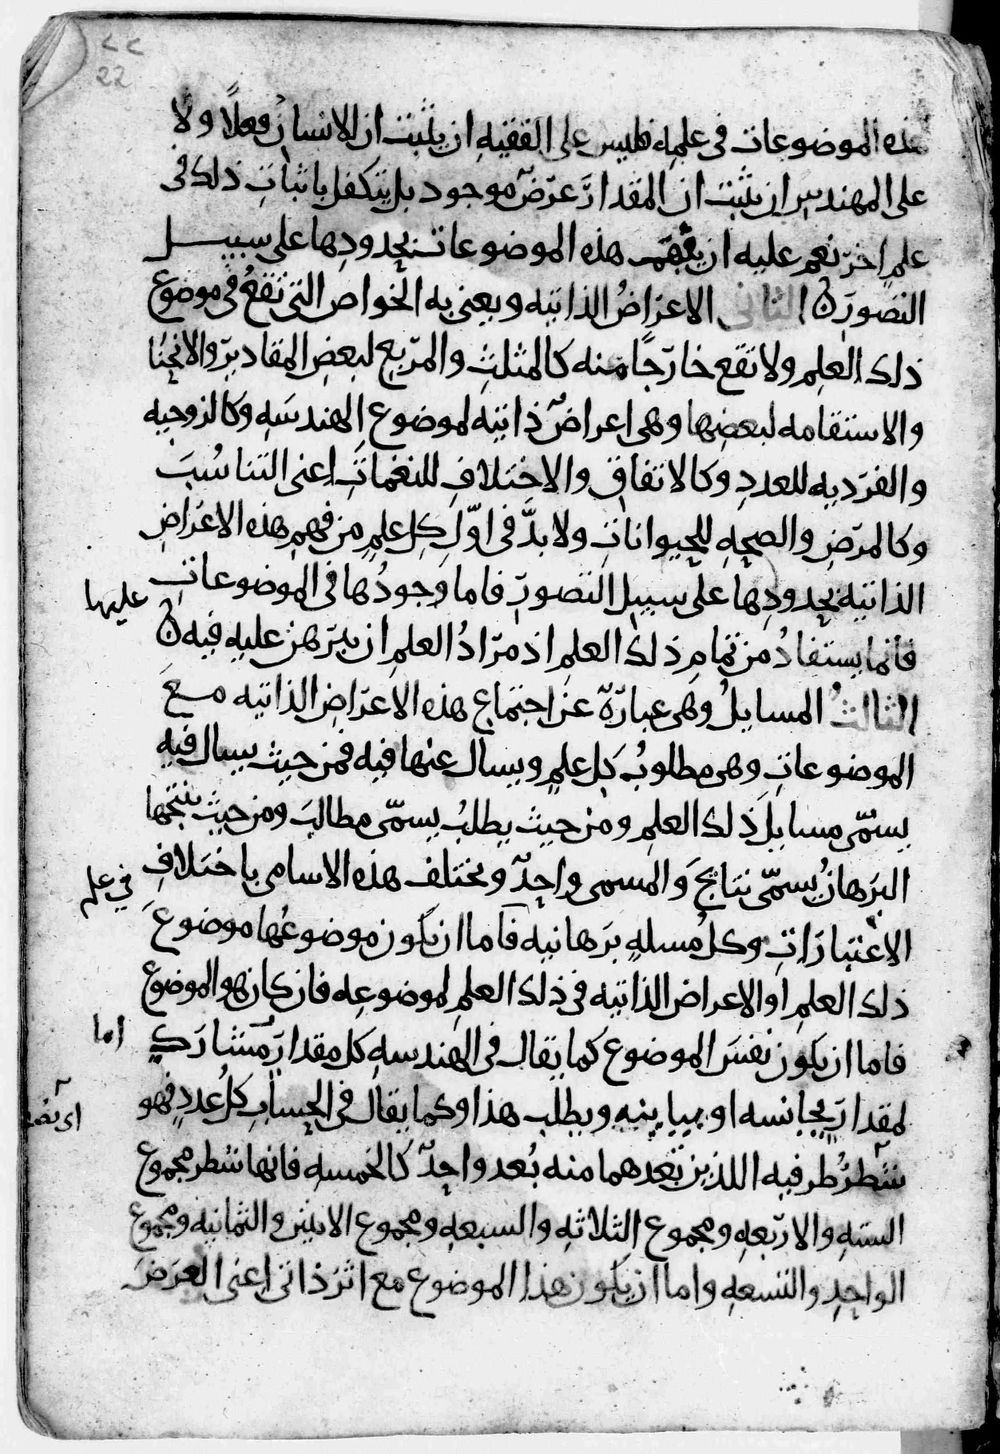 ٢٢
22
هذه الموضوعات فى علمه فليس على الفقيه ان يثبت ان للانسان فعلًا ولا
على المهندس ان يثبت ان المقدار عرضٌ موجود بل يتكفل باثبات ذلك فى
علمٍ اخر نعم عليه ان يفهم هذه الموضوعات بحدودها على سبيل
التصور ۞ الثانى الاعراضُ الذاتيه ويعنى به الخواص التى تقعُ فى موضوع
ذلك العلمِ ولا تقع خارجًا منه كالمثلثِ والمربع لبعض المقادير والانحنا
والاستقامه لبعضها وهى اعراضٌ ذاتيه لموضوع الهندسه وكالزوجيه
والفرديه للعددِ وكالاتفاقِ والاختلافِ للنغماتِ اعنى التناسُبَ
وكالمرضِ والصحهِ للحيوانات ولا بدَّ فى اوّل كل علمٍ من فهم هذه الاعراضِ
الذاتيه بحدودها على سبيل التصور فاما وجودُها فى الموضوعاتِ
عليها
فانما يستفادُ من تمام ذلك العلم اذ مرادُ العلم ان يبرهن عليه فيه ۞
الثالثُ المسايلُ وهى عبارةٌ عن اجتماع هذه الاعراض الذاتيه مع
الموضوعاتِ وهى مطلوبُ كل علمٍ ويسال عنها فيه فمن حيث يسال فيه
يسمّى مسايلَ ذلك العلمِ ومن حيث يطلبُ يسمّى مطالبَ ومن حيث ينتجها
البرهانُ يسمّى نتايجَ والمسمى واحدٌ وتختلف هذه الاسامى باختلافِ
فى علم
الاعتباراتِ وكل مسلهٍ برهانيه فاما ان يكون موضوعُها موضوعَ
ذلك العلم او الاعراض الذاتيه فى ذلك العلمِ لموضوعِه فان كان هو الموضوع
اما
فاما ان يكون نفسَ الموضوع كما يقال فى الهندسهِ كل مقدارٍ مشارك
لمقدار يجانسه او يباينه ويطلب هذا وكما يقال فى الحسابِ كلُ عددٍ فهو
شطرُ طرفيه اللذين بُعدهما منه بُعد واحدٌ كالخمسهِ فانها شطر مجموع
الستهِ والاربعهِ ومجموع الثلاثهِ والسبعهِ ومجموع الاثنين والثمانيه ومجموع
الواحدِ والتسعهِ واما ان يكون هذا الموضوع مع اثر ذاتى اعنى العرضَ